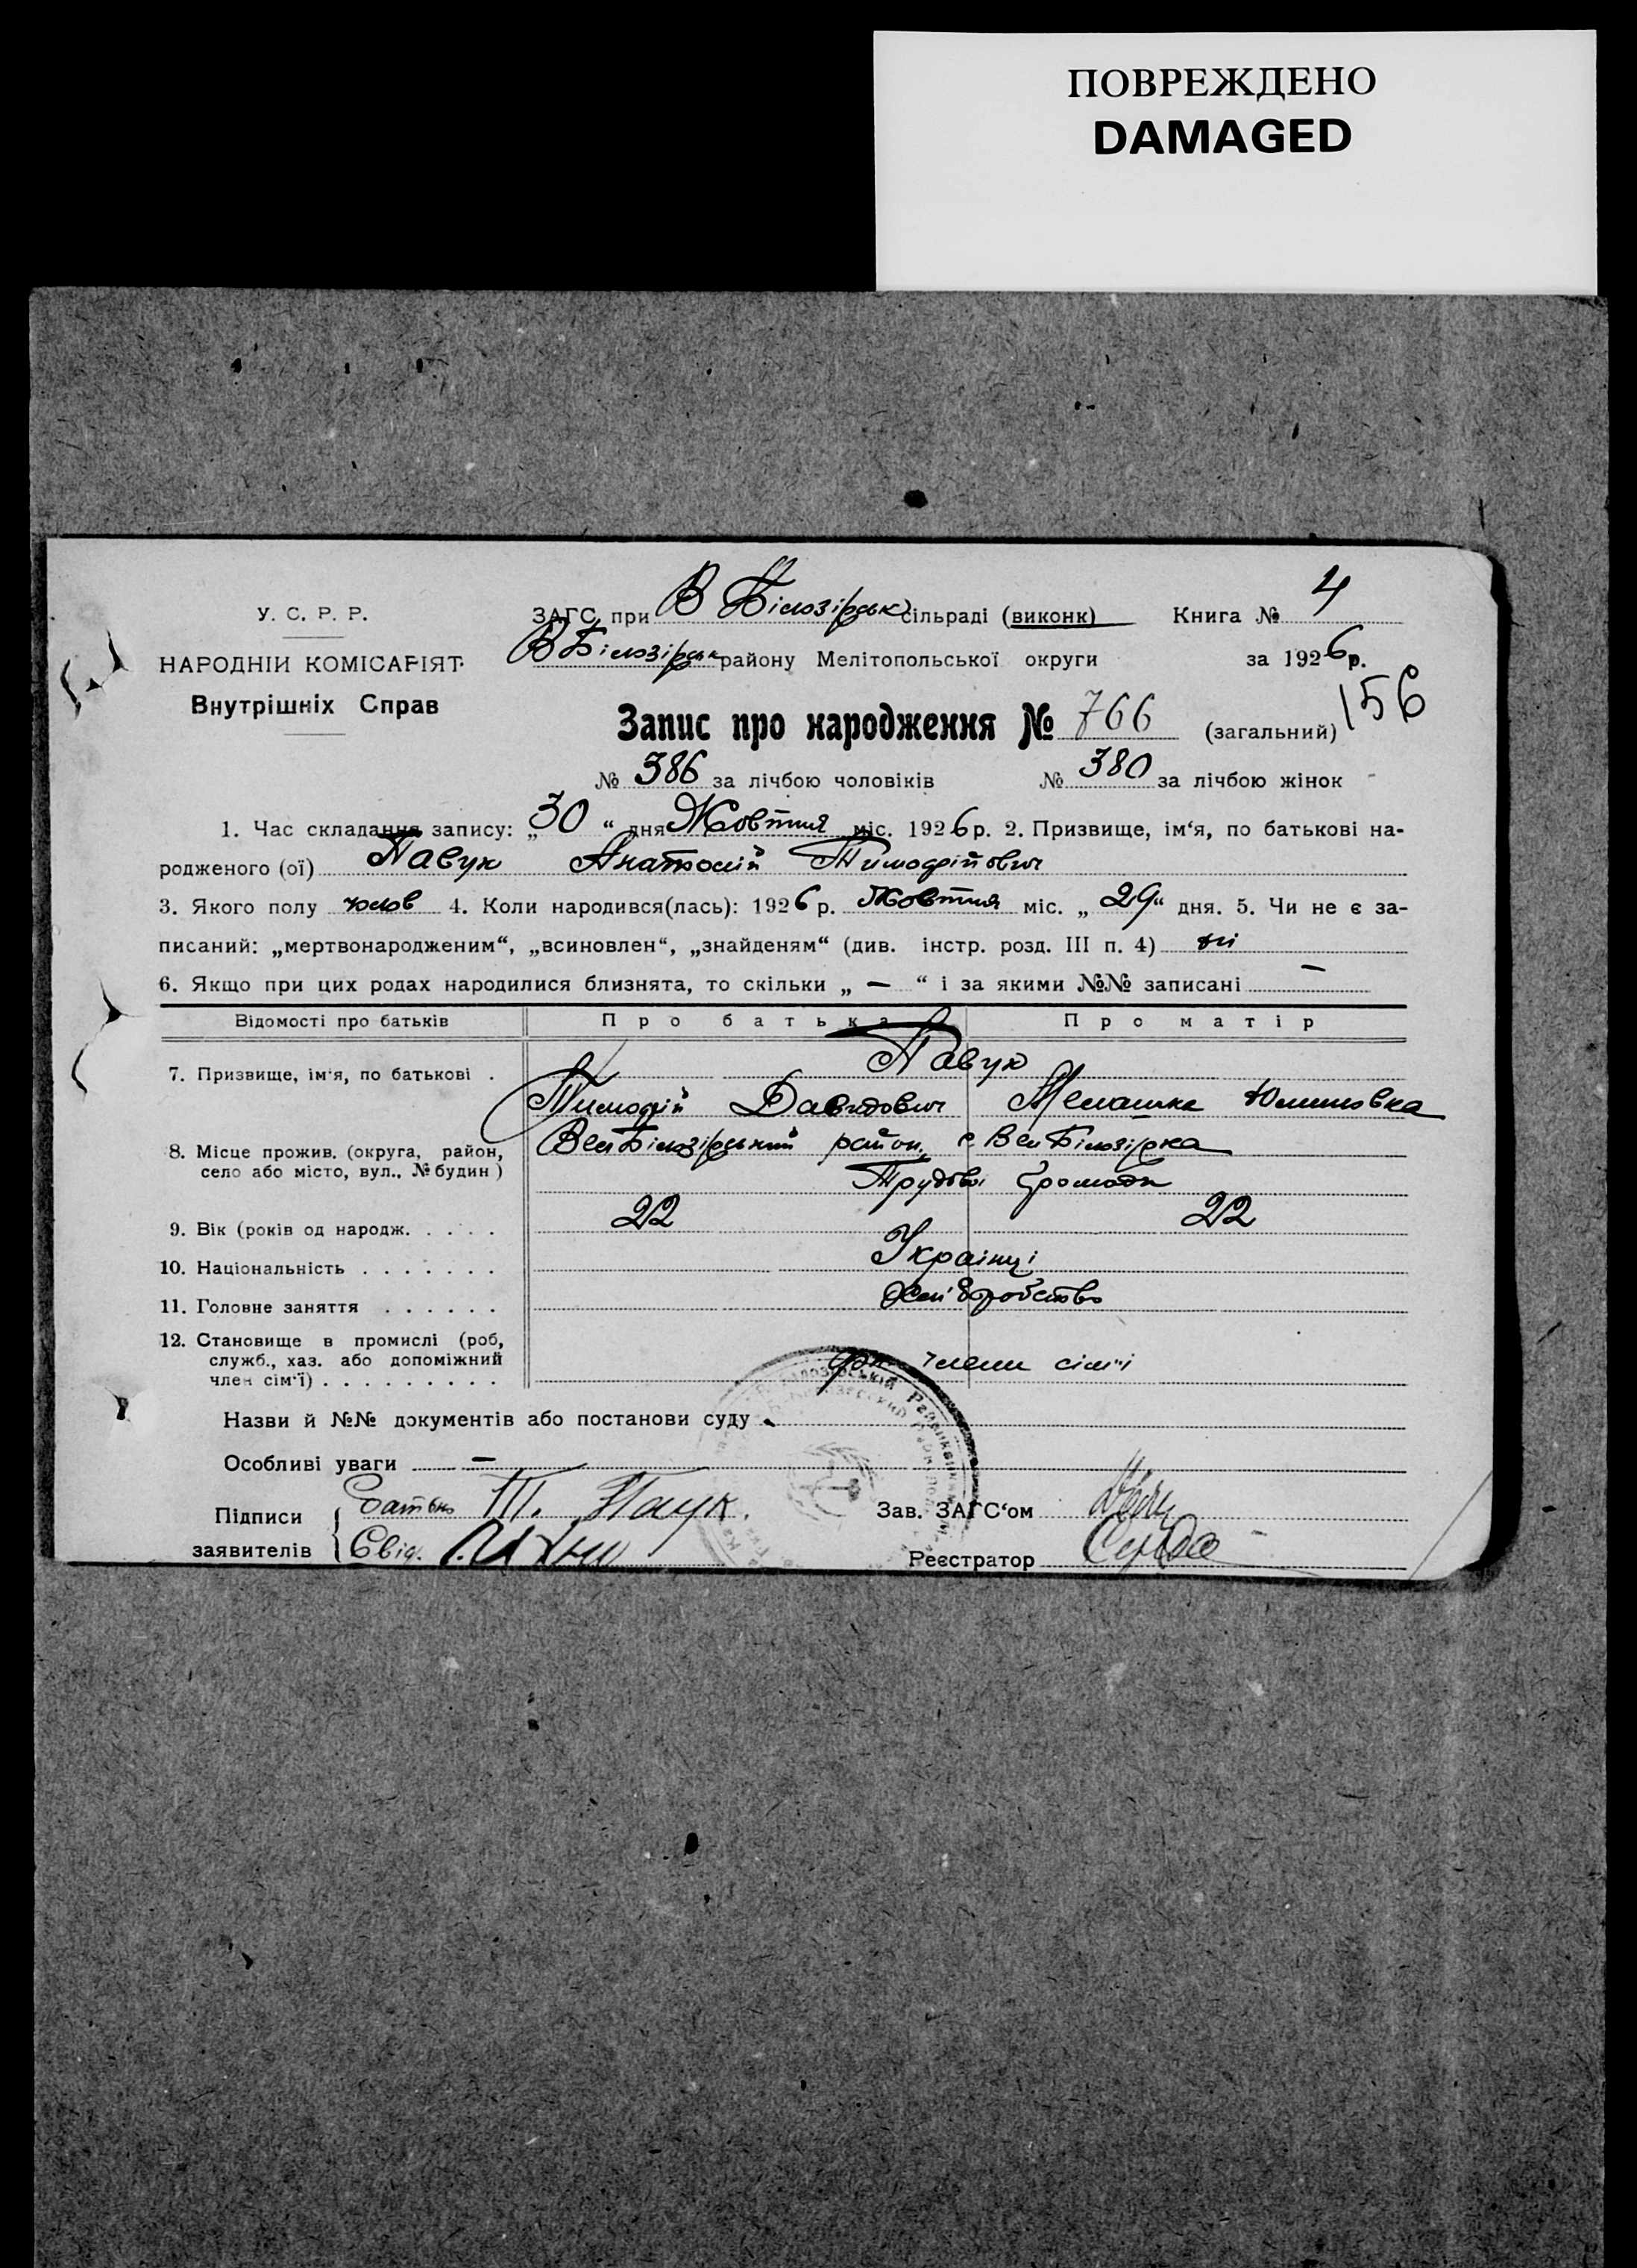 ПОВРЕЖДЕНО
DAMAGED
У. С. Р. Р.
НАРОДНІЙ КОМІСАРІЯТ
Внутрішніх Справ
ЗАГС при В Білозірськ сільраді (виконк) Книга № 4
В Білозірськ району Мелітопольської округи за 1926 р.
156
Запис про народження № 766 (загальний)
№ 386 за лічбою чоловіків № 380 за лічбою жінок
1. Час складання запису: „30“ дня Жовтня міс. 1926 р. 2. Призвище, ім‘я, по батькові на-
родженого (ої) Павук Анатолій Тимофійович
3. Якого полу чолов 4. Коли народився(лась): 1926 р. Жовтня міс. „29“ дня. 5. Чи не є за-
писаний: „мертвонародженим“, „всиновлен“, „знайденям“ (див. інстр. розд. III п. 4) ні
6. Якщо при цих родах народилися близнята, то скільки „ — “ і за якими №№ записані —
Відомості про батьків Про батька Про матір
Павук
7. Призвище, ім‘я, по батькові .
Тимофій Давидович Мелашка
8. Місце прожив. (округа, район,
село або місто, вул., № будин )
Вел Білозірський район, с Вел Білозірка
Трудової громади
9. Вік (років од народж. . . . . 22 22
10. Національність . . . . . . . Українці
11. Головне заняття . . . . . . Хліборобство
12. Становище в промислі (роб,
служб., хаз. або допоміжний
член сім‘ї) . . . . . . . . . члени сім'ї
Назви й №№ документів або постанови суду
Особливі уваги —
Підписи
заявителів
батько Т. Паук.
Свід.
Зав. ЗАГС‘ом
Реєстратор Середа